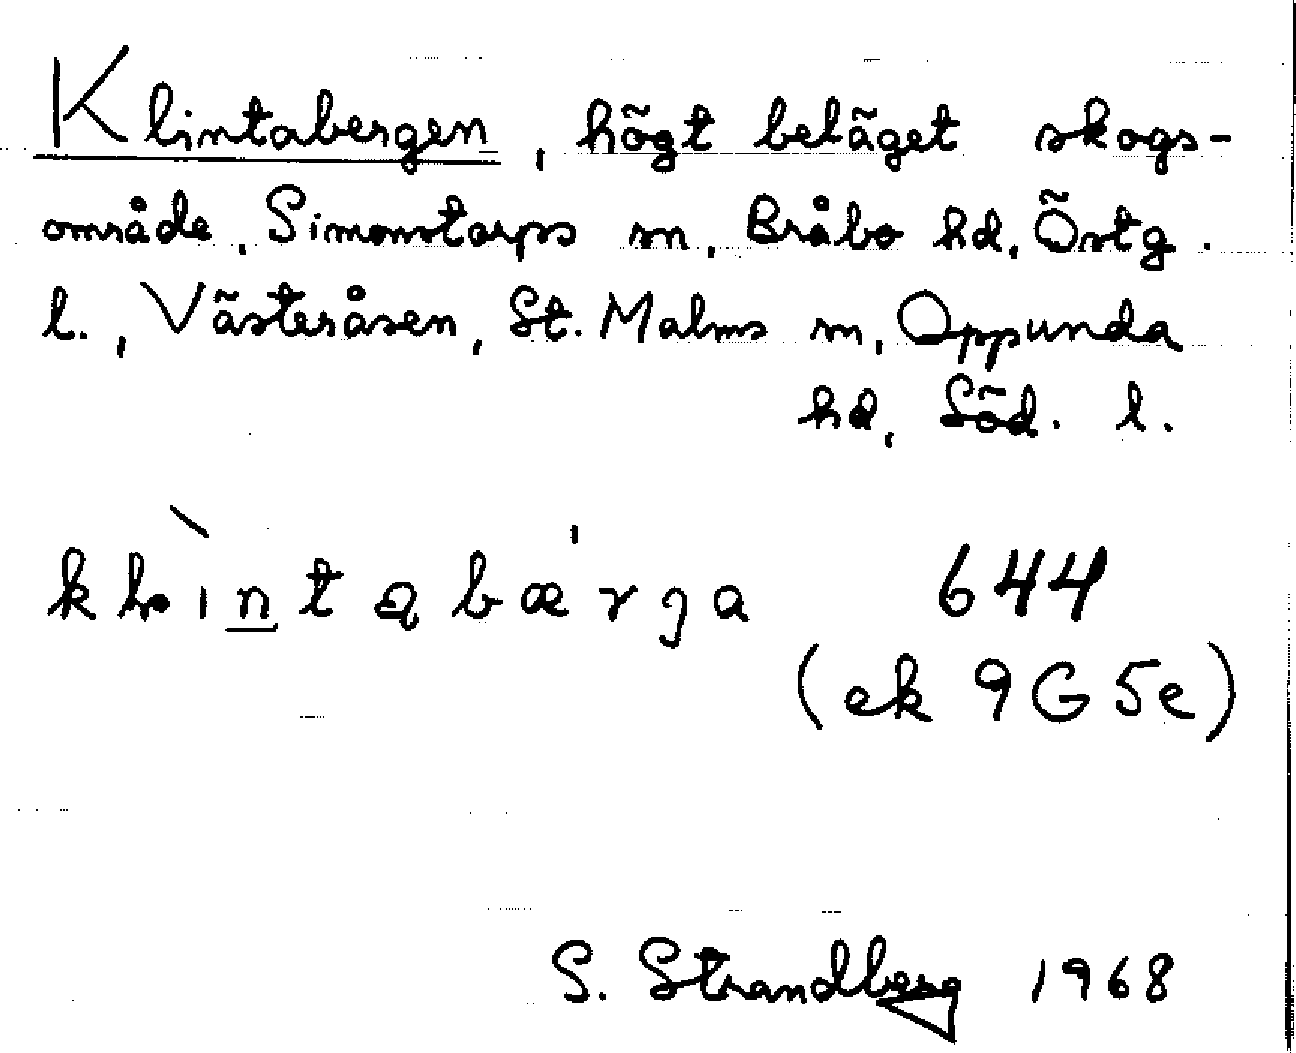 Klintabergen, högt beläget skogs-
område, Simonstorps sn, Bråbo hd, Östg.
l., Västeråsen, St. Malms sn, Oppunda
hd, Söd. l.
644
(ek 9G5e)
S. Strandberg 1968